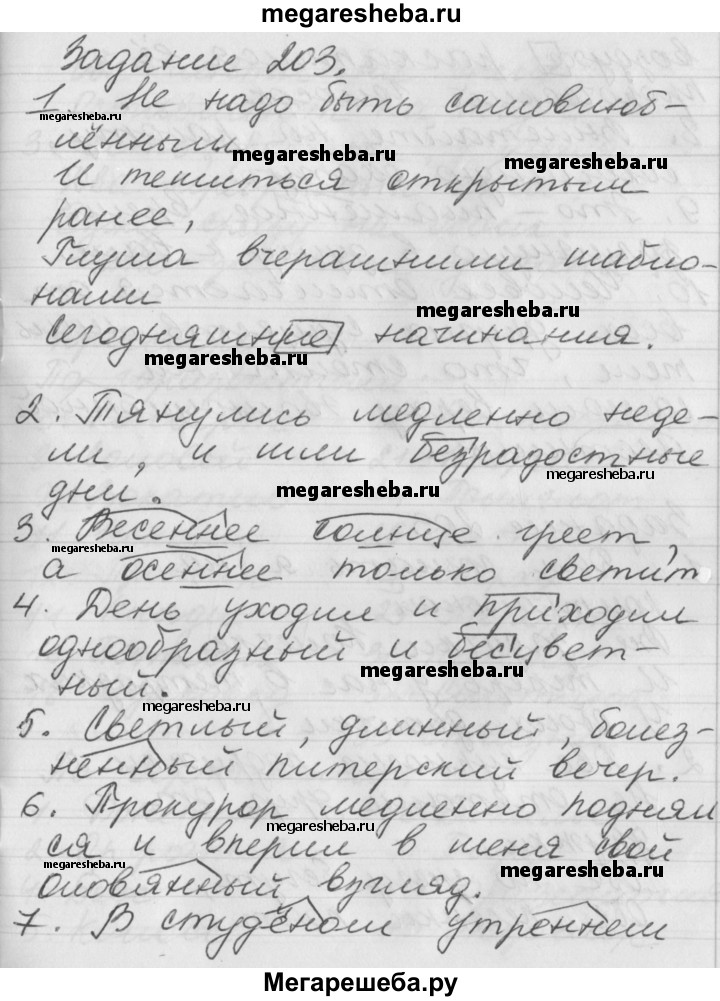 megaresheba.ru
Задание 203.
1. Не надо быть самовлюб-
лёнными
megaresheba.ru megaresheba.ru
И тешиться открытым
ранее,
Глуша вчерашними шабло-
нами
megaresheba.ru
Сегодняшние начинания.
megaresheba.ru
2. Тянулись медленно неде-
ли, и шли безрадостные
megaresheba.ru
дни.
megaresheba.ru
3. Весеннее солнце греет,
megaresheba.ru
а осеннее только светит
4. День уходил и приходил
однообразный и бесцвет-
megaresheba.ru
ный.
megaresheba.ru
5. Светлый, длинный, болез-
ненный питерский вечер.
6. Прокурор медленно поднял
megaresheba.ru
ся и вперил в меня свой
megaresheba.ru megaresheba.ru
оловянный взгляд.
7. В студёном утреннем
Мегарешеба.ру